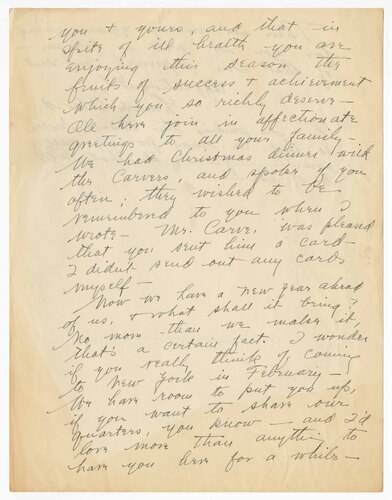 you & yours, and that in
spite of ill health you are
enjoying this season the
fruits of success & achievement
which you so richly deserve—
All here join in affectionate
greetings to all your family—
We had Christmas dinner with
the Carvers, and spoke of you
often; they wished to be
remembered to you when I
wrote— Mr. Carver was pleased
that you sent him a card—
I didn't send out any cards
myself—
Now we have a new year ahead
of us, & what shall it bring?
No more than we make it,
that's a certain fact. I wonder
if you really think of coming
to New York in February—
We have room to put you up,
if you want to share our
quarters, you know— and I'd
love more than anything to
have you here for a while—